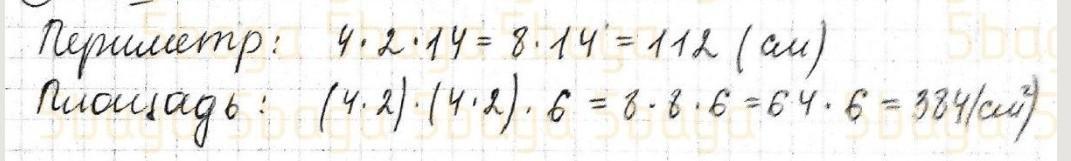 Периметр: 4·2·14 = 8·14 = 112 (см)
Площадь: (4·2)·(4·2)·6 = 8·8·6 = 64·6 = 384 (см²)